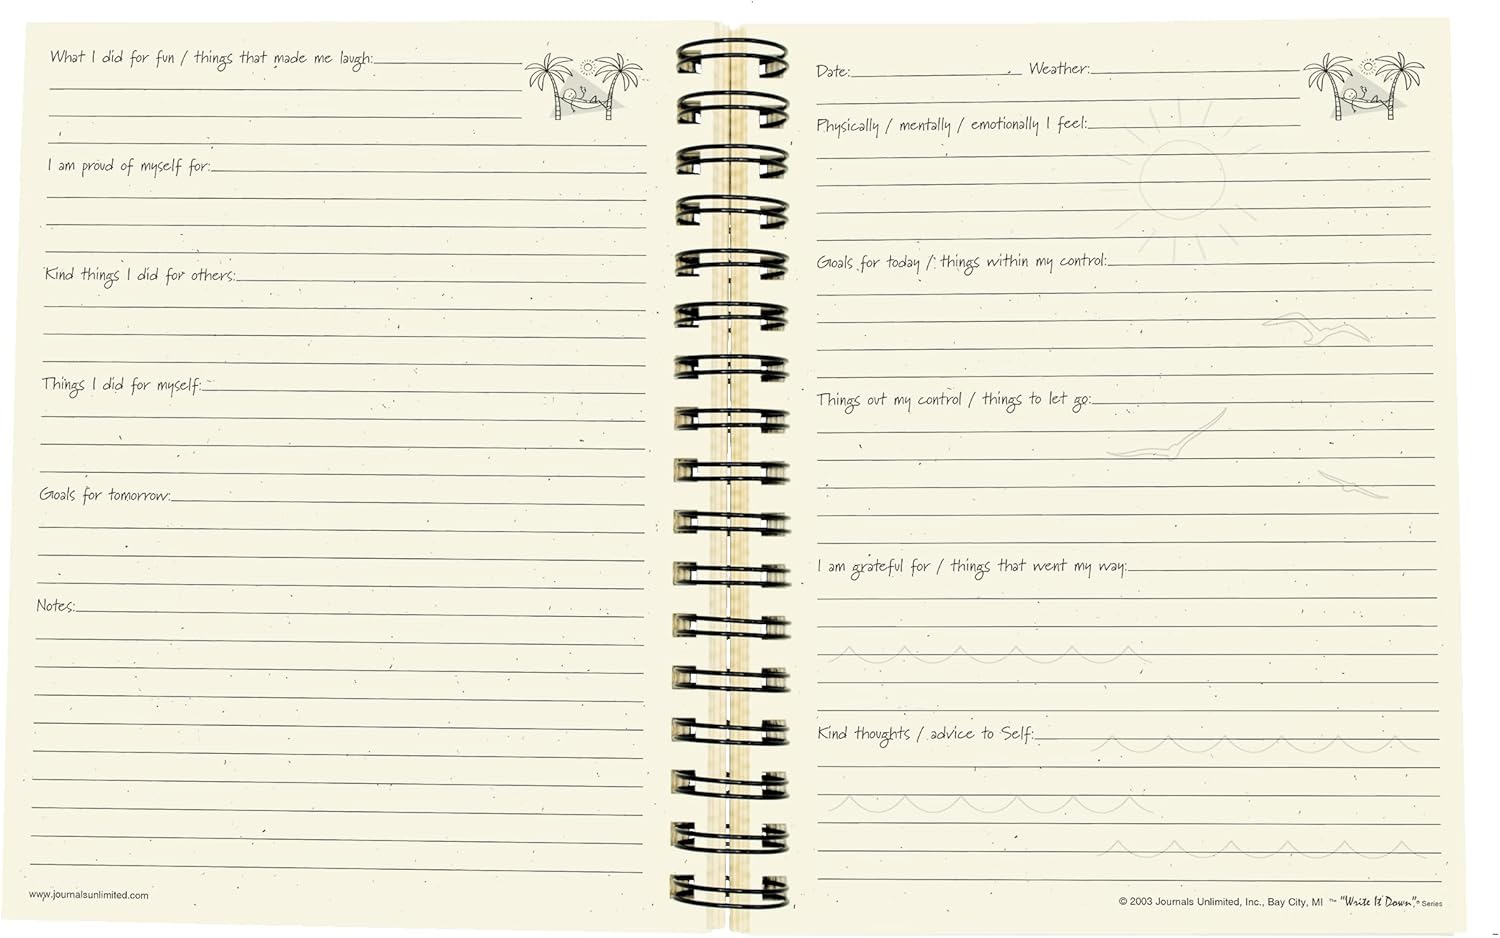 What I did for fun / things that made me laugh:
I am proud of myself for:
Kind things I did for others:
Things I did for myself:
Goals for tomorrow:
Notes:
www.journalsunlimited.com
Date: Weather:
Physically / mentally / emotionally I feel:
Goals for today / things within my control:
Things out my control / things to let go:
I am grateful for / things that went my way:
Kind thoughts / advice to Self:
© 2003 Journals Unlimited, Inc., Bay City, MI ™ "Write It Down"® Series